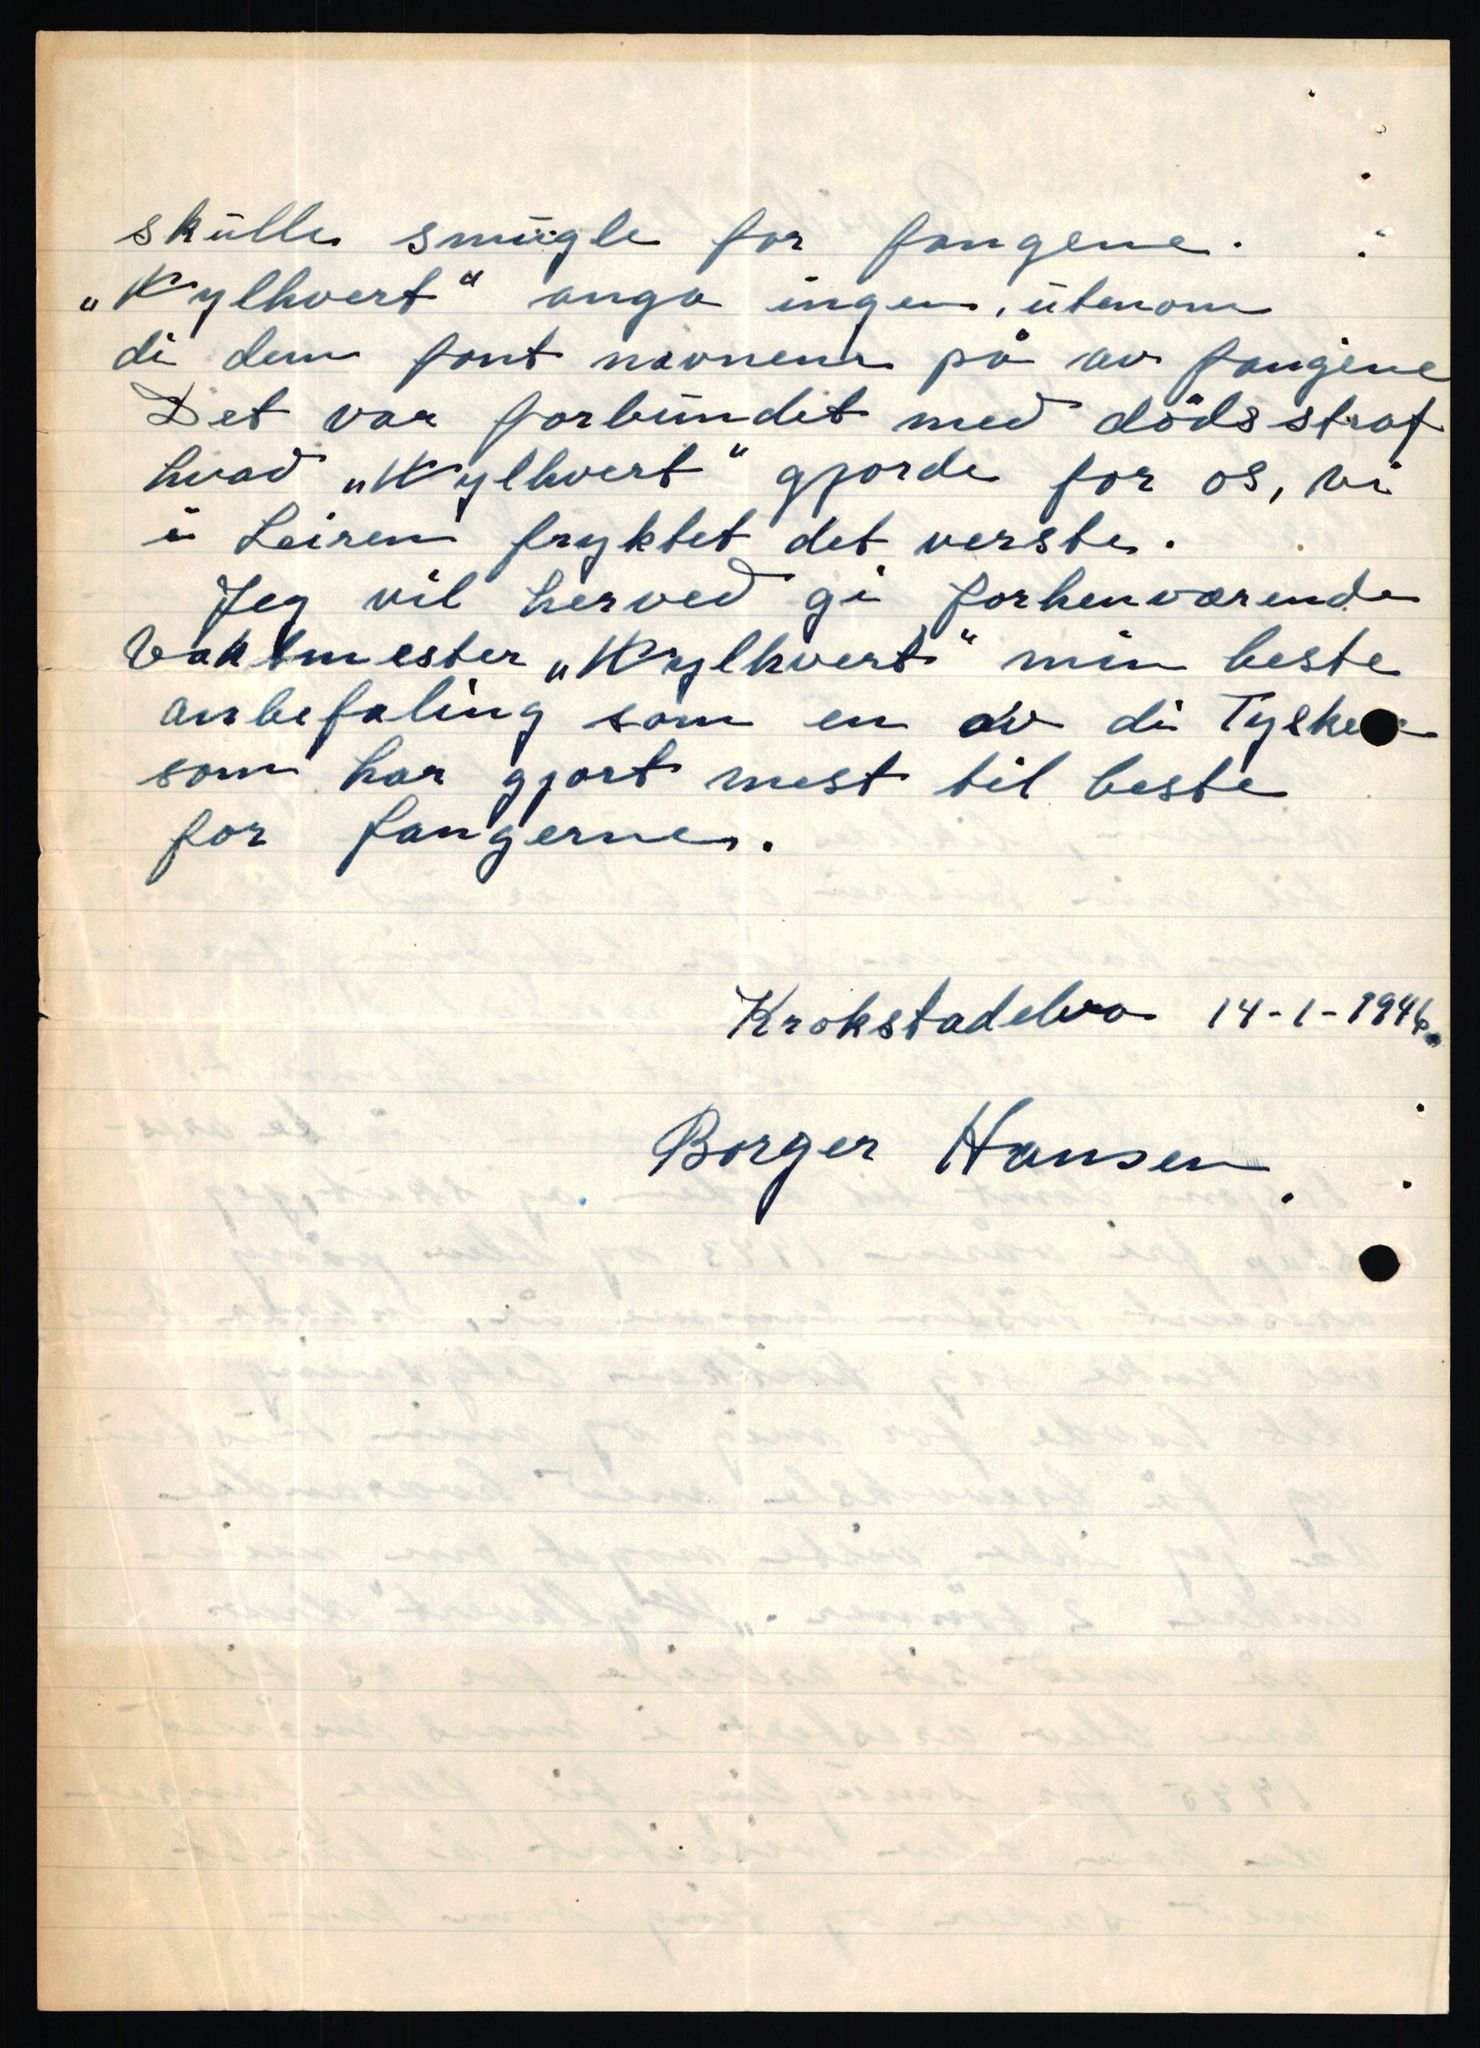 skulle smugle for fangene.
„Wylhvert“ anga ingen, utenom
di dem fant navnene på av fangene
Det var forbundet med dödsstraf
hvad „Wylhvert“ gjorde for os, vi
i Leiren fryktet det verste.
Jeg vil herved gi forhenværende
Vaktmester „Wylhvert“ min beste
anbefaling som en av di Tyskere
som har gjort mest til beste
for fangerne.
Krokstadelva 14-1-1946.
Borger Hansen.